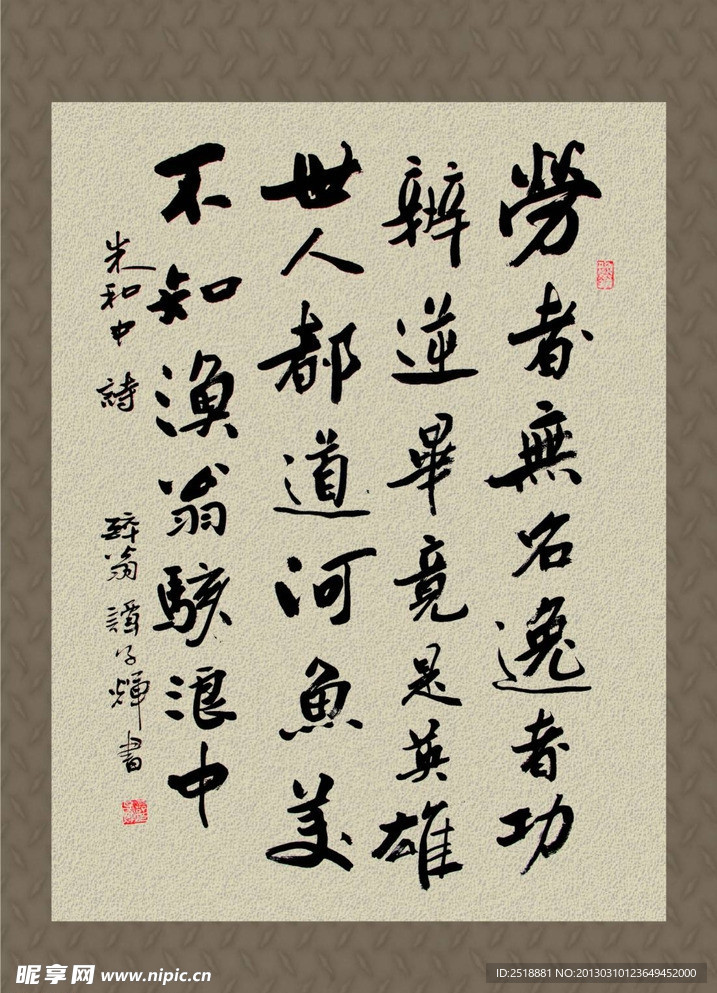 勞者無名逸者功
辨逆畢竟是英雄
世人都道河魚美
不知漁翁駭浪中
朱和中 詩
醉翁 譚子輝書
昵享网 www.nipic.cn
ID:2518881 NO:20130310123649452000